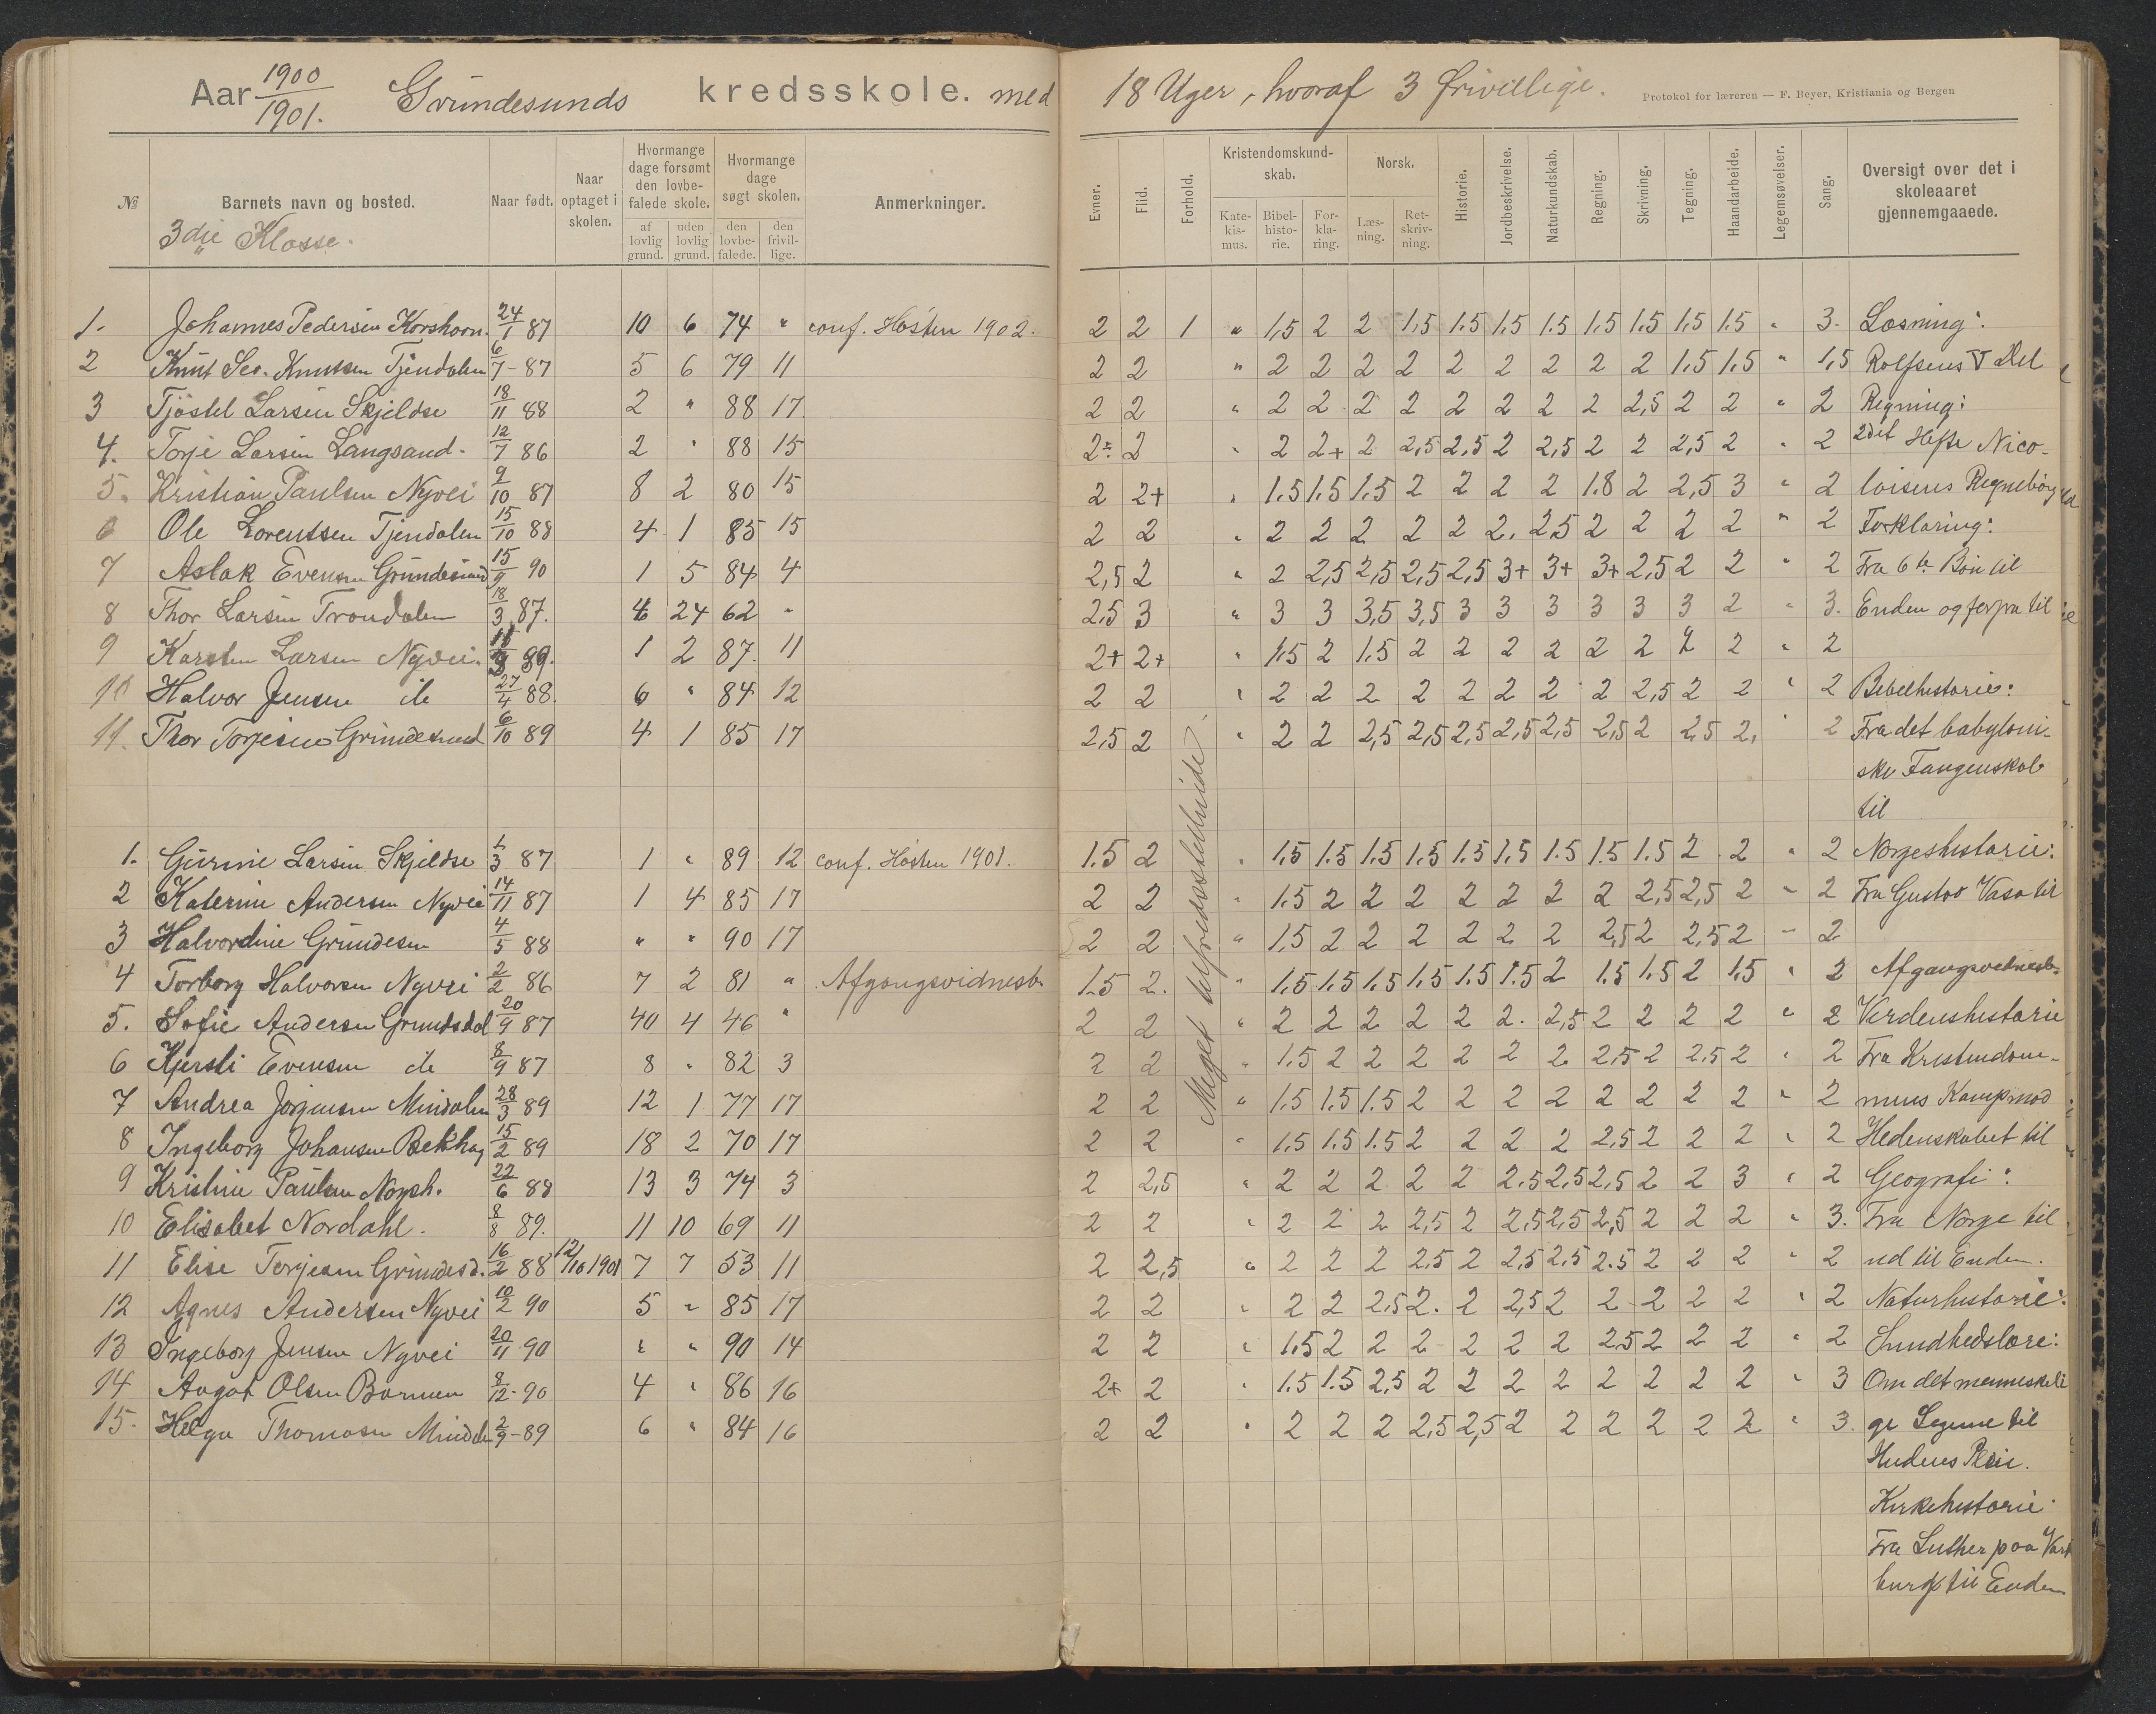 Aar 1900/1901. Grundesunds kredsskole. med 18 Uger, hvoraf 3 frivillige.
Protokol for læreren — F. Beyer, Kristiania og Bergen
№ Barnets navn og bosted. Naar født. Naar optaget i skolen. Hvormange dage forsømt den lovbefalede skole. af lovlig grund. uden lovlig grund. Hvormange dage søgt skolen. den lovbefalede. den frivillige. Anmerkninger. Evner. Flid. Forhold. Kristendomskundskab. Katekismus. Bibelhistorie. Forklaring. Norsk. Læsning. Retskrivning. Historie. Jordbeskrivelse. Naturkundskab. Regning. Skrivning. Tegning. Haandarbeide. Legemsøvelser. Sang. Oversigt over det i skoleaaret gjennemgaaede.
3die Klasse.
1. Johannes Pedersen Korshavn. 24/1 87 10 6 74 " conf. Høsten 1902. 2 2 1 " 1,5 2 2 1,5 1.5 1.5 1.5 1.5 1.5 1.5 1.5 " 3. Læsning:
2 Knut Sev. Knutsen Tjendalen 6/7 - 87 5 6 79 11 2 2 " 2 2 2 2 2 2 2 2 2 1.5 1.5 " 1,5 Rolfsens V Del
3 Tjøstel Larsen Skjeldsø 18/11 88 2 " 88 17. 2 2 " 2 2 2 2 2 2 2 2 2,5 2 2 " 2 Regning:
4. Torje Larsen Langsand. 12/7 86 2 " 88 15 2÷ 2 " 2 2+ 2 2,5 2,5 2 2,5 2 2 2,5 2 " 2 2det Hefte Nico-
5. Kristian Paulsen Nyvei 9/10 87 8 2 80 15 2 2+ " 1.5 1.5 1.5 2 2 2 2 1.8 2 2,5 3 " 2 laisens Regnebog
6 Ole Lorentsen Tjendalen 15/10 88 4 1 85 15 2 2 " 2 2 2 2 2 2. 2,5 2 2 2 2 " 2 Forklaring:
7 Aslak Evensen Grundesund 15/9 90 1 5 84 4 2,5 2 " 2 2,5 2,5 2,5 2,5 3+ 3+ 3+ 2,5 2 2 " 2 Fra 6te Bøn til
8 Thor Larsen Trondalen 18/3 87. 4 24 62 " 2,5 3 " 3 3 3,5 3,5 3 3 3 3 3 3 2 " 3. Enden og forfra til
9 Karsten Larsen Nyvei. 89. 1 2 87. 11 2+ 2+ " 1.5 2 1.5 2 2 2 2 2 2 2 2 " 2
10 Halvor Jensen do 27/4 88. 6 " 84 12 2 2 " 2 2 2 2 2 2 2 2 2,5 2 2 " 2 Bibelhistorie:
11. Thor Torjesen Grundesund 6/10 89 4 1 85 17 2,5 2 " 2 2 2,5 2,5 2,5 2,5 2,5 2,5 2 2,5 2. " 2 Fra det babyloni-
ske Fangenskab
til
Meget tilfredsstillende
1. Gurine Larsen Skjeldsø 1/3 87 1 " 89 12 conf. Høsten 1901. 1.5 2 " 1.5 1.5 1.5 1.5 1.5 1.5 1.5 1.5 1.5 2 2 " 2 Norgeshistorie:
2 Katerine Andersen Nyvei 14/11 87 1 4 85 17 2 2 " 1.5 2 2 2 2 2 2 2 2,5 2,5 2 " 2 Fra Gustav Vasa til
3 Halvordine Grundesen 4/5 88 " " 90 17 2 2 " 1,5 2 2 2 2 2 2 2,5 2 2,5 2 " 2
4 Torborg Halvorsen Nyvei 2/2 86 7 2 81 " Afgangsvidnesb. 1.5 2. " 1.5 1.5 1.5 1.5 1.5 1.5 2 1.5 1.5 2 1.5 " 2 Afgangsvidnesb.
5. Sofie Andersen Grundsdal 20/9 87 40 4 46 " 2 2 " 2 2 2 2 2 2. 2,5 2 2 2 2 " 2 Verdenshistorie
6 Kjersti Evensen do 8/9 87 8 " 82 3 2 2 " 1.5 2 2 2 2 2 2 2,5 2 2.5 2 " 2 Fra Kristendom-
7 Andrea Jørgensen Mindalen 28/3 89 12 1 77 17 2 2 " 1.5 1.5 1.5 2 2 2 2 2 2 2 2 " 2 mens Kamp mod
8 Ingeborg Johansen Bekhag 15/2 89 18 2 70 17 2 2 " 1.5 1.5 1.5 2 2 2 2 2,5 2 2 2 " 2 Hedenskabet til
9 Kristine Paulsen 22/6 88 13 3 74 3 2 2,5 " 2 2 2 2 2 2.5 2,5 2,5 2 2 3 " 2 Geografi:
10 Elisabet Nordahl. 8/8 89. 11 10 69 11 2 2 " 2 2 2 2,5 2 2,5 2,5 2,5 2 2 2 " 3. Fra Norge til
11 Elise Torjesen Grundesd. 16/2 88 12/10 1901 7 7 53 11 2 2,5 " 2 2 2 2,5 2 2,5 2,5 2.5 2 2 2 " 2 ud til Enden.
12 Agnes Andersen Nyvei 10/2 90 5 " 85 17 2 2 " 2 2 2,5 2. 2 2,5 2 2 2 2 2 " 2 Naturhistorie:
13 Ingeborg Jensen Nyvei 20/11 90 " " 90 14 2 2 " 1.5 2 2 2 2 2 2 2.5 2 2 2 " 2 Sundhedslære:
14 Aagot Olsen Barmen 8/12 - 90 4 " 86 16 2+ 2 " 1.5 1.5 2,5 2 2 2 2 2 2 2 2 " 3 Om det menneskeli
15. Helga Thomasen Mindalen 2/9 - 89 6 " 84 16 2 2 " 2 2 2 2,5 2,5 2 2 2 2 2 2 " 3. ge Legeme til
Hudens Pleie.
Kirkehistorie.
Fra Luther paa Vart
burg til Enden